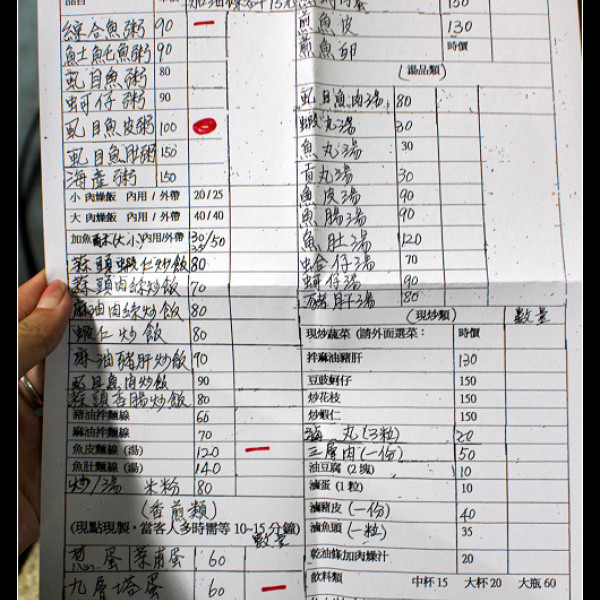 品目
加油條
15元
綜合魚粥 90 一
魠魠魚粥 90
虱目魚粥 80
蚵仔粥 90
虱目魚皮粥 100
虱目魚肚粥 150
海產粥 150
小 肉燥飯 內用 / 外帶 20/25
大 肉燥飯 內用 / 外帶 40/40
加魚酥(大小)內用/外帶 30/50 35
蒜頭蝦仁炒飯 80
蒜頭肉絲炒飯 70
麻油肉絲炒飯 80
蝦仁炒飯 80
麻油豬肝炒飯 90
虱目魚肉炒飯 90
蒜頭香腸炒飯 80
豬油拌麵線 60
麻油拌麵線 70
魚皮麵線 (湯) 120 一
魚肚麵線 (湯) 140
炒/湯 米粉 80
(香煎類)
(現點現製，當客人多時需等 10~15 分鐘)
數量
蔥蛋 菜甫蛋 60
九層塔蛋 60 一
150
煎魚皮 130
煎魚卵 時價
(湯品類)
虱目魚肉湯 80
蝦丸湯 30
魚丸湯 30
貢丸湯 30
魚皮湯 90
魚腸湯 90
魚肚湯 120
蛤仔湯 70
蚵仔湯 90
豬肝湯 80
(現炒類) 數量
現炒蔬菜 (請外面選菜： 時價
拌麻油豬肝 130
豆豉蚵仔 150
炒花枝 150
炒蝦仁 150
滷丸(3粒) 20
三層肉(一份) 50
油豆腐 (2 塊) 10
滷蛋 (1 粒) 10
滷豬皮(一份) 40
滷魚頭(一粒) 35
乾油條加肉燥汁 20
飲料類 中杯 15 大杯 20 大瓶 60